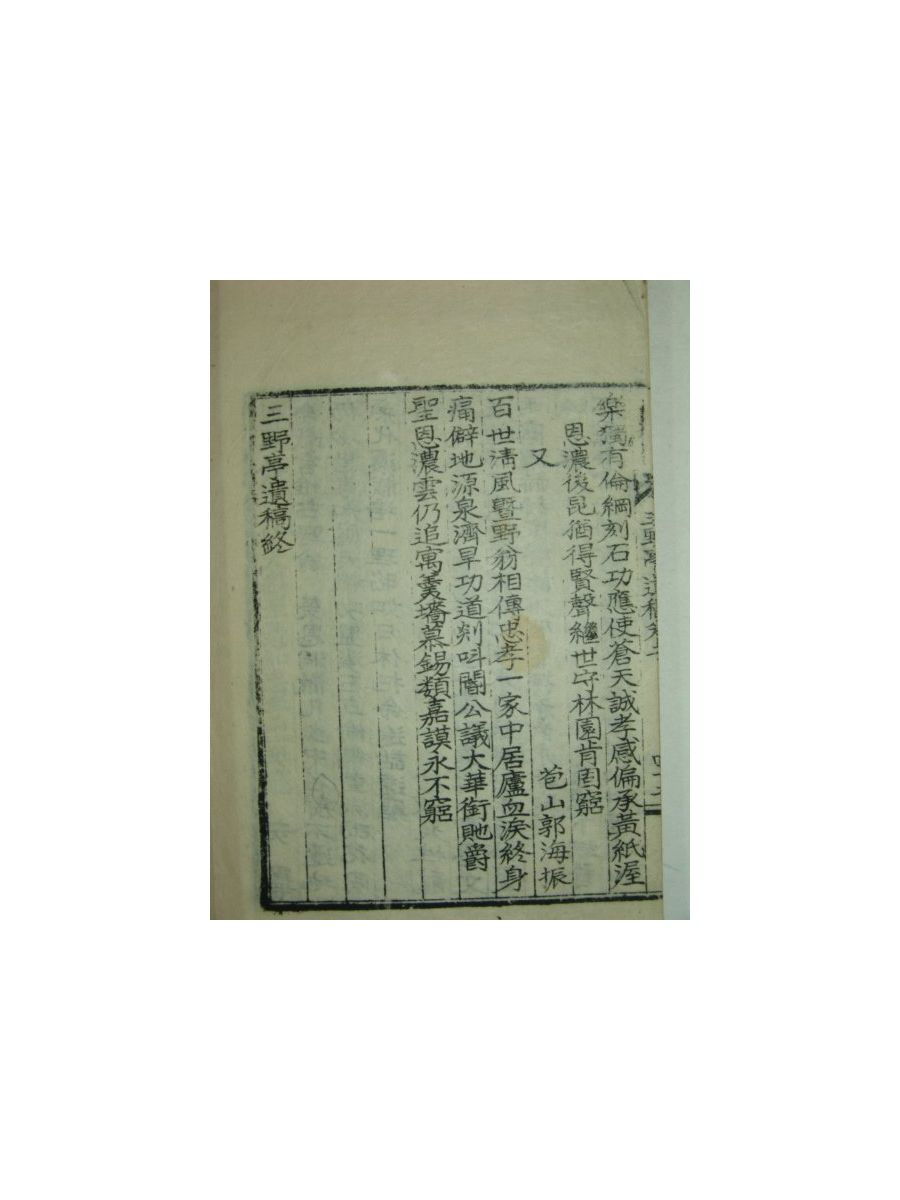 樂獨有倫綱刻石功應使蒼天誠孝感偏承黃紙渥
恩濃後昆猶得賢聲繼世守林園肯固窮
又
苞山郭海振
百世淸風曁野翁相傳忠孝一家中居廬血淚終身
痛僻地源泉濟旱功道剡叫閽公議大華銜貤爵
聖恩濃雲仍追寓羹墻慕錫類嘉謨永不窮
三野亭遺稿終
三野亭遺稿卷